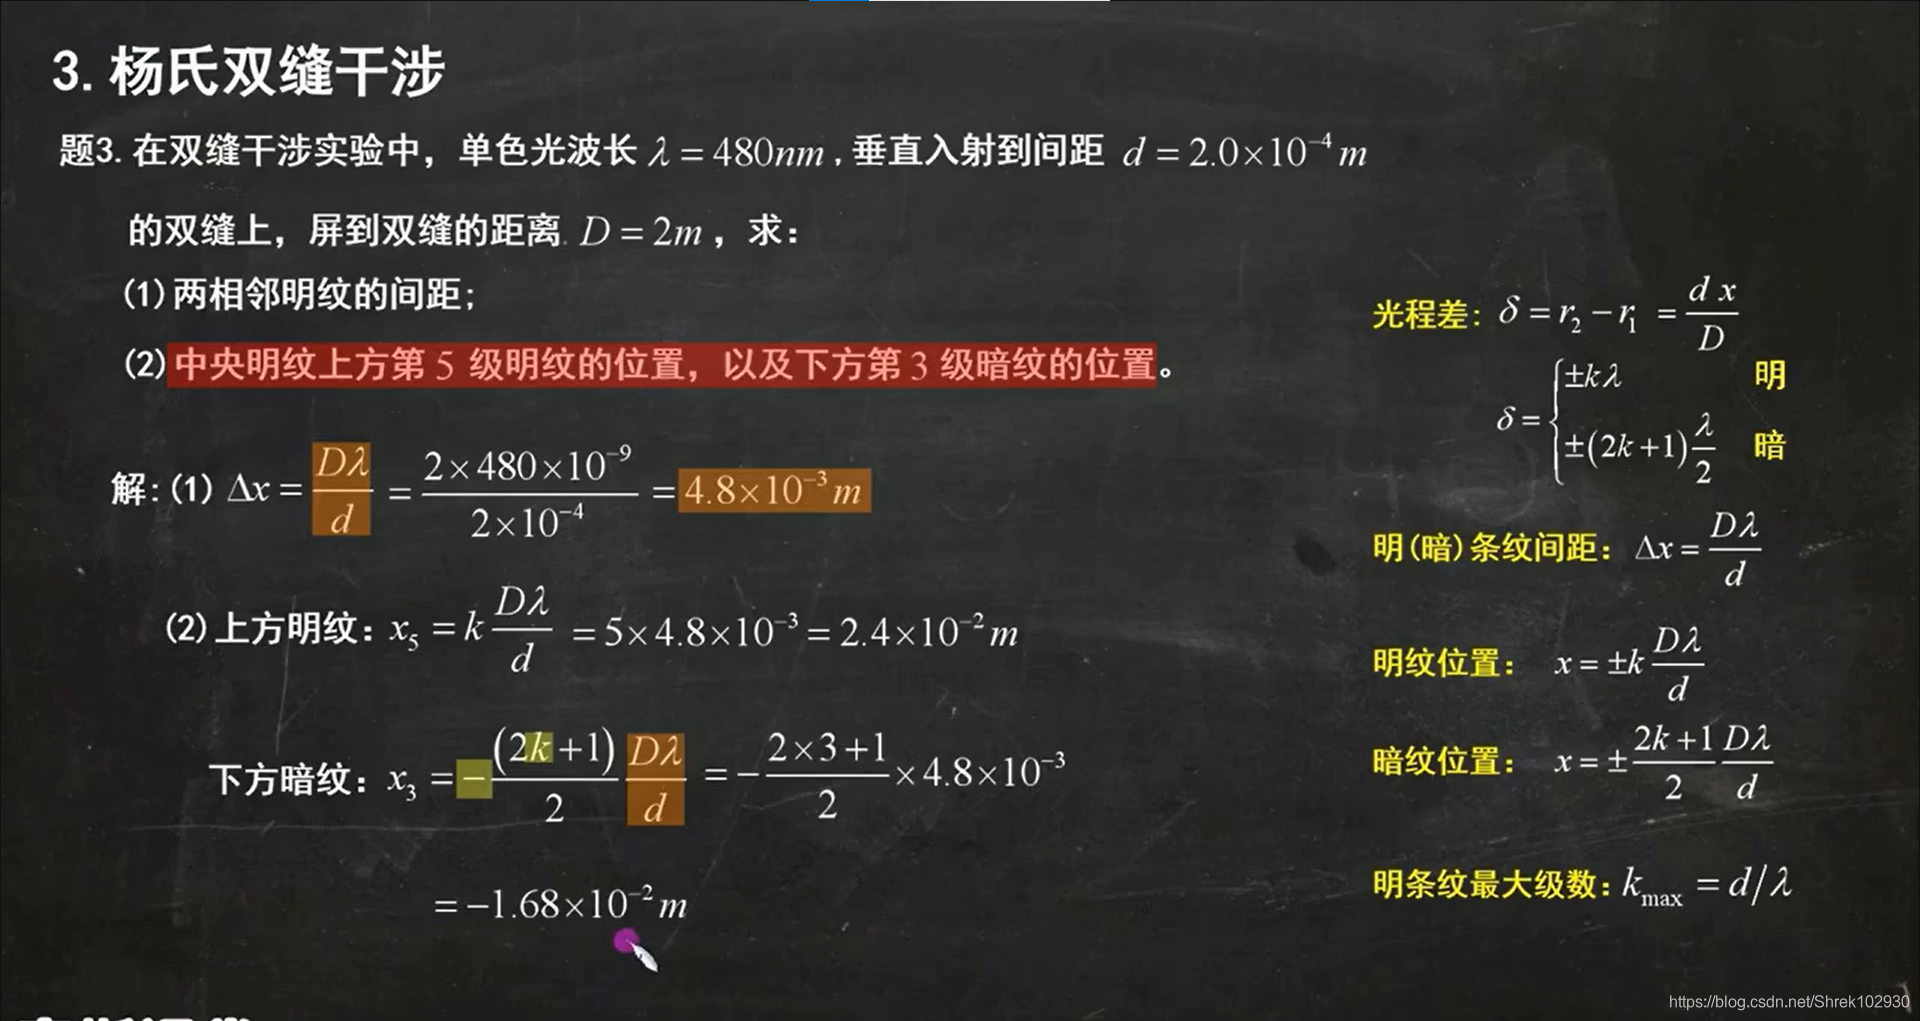 3. 杨氏双缝干涉
题3. 在双缝干涉实验中，单色光波长 λ = 480nm , 垂直入射到间距 d = 2.0×10⁻⁴ m
的双缝上，屏到双缝的距离. D = 2m ，求：
(1) 两相邻明纹的间距;
(2) 中央明纹上方第 5 级明纹的位置，以及下方第 3 级暗纹的位置。
解: (1) Δx = Dλ/d = (2×480×10⁻⁹)/(2×10⁻⁴) = 4.8×10⁻³ m
(2) 上方明纹: x₅ = k Dλ/d = 5×4.8×10⁻³ = 2.4×10⁻² m
下方暗纹: x₃ = −(2k+1)/2 Dλ/d = −(2×3+1)/2 ×4.8×10⁻³
= −1.68×10⁻² m
光程差: δ = r₂ − r₁ = d x/D
δ = { ±kλ 明
±(2k+1) λ/2 暗
明(暗)条纹间距: Δx = Dλ/d
明纹位置: x = ±k Dλ/d
暗纹位置: x = ± (2k+1)/2 Dλ/d
明条纹最大级数: kmax = d/λ
https://blog.csdn.net/Shrek102930